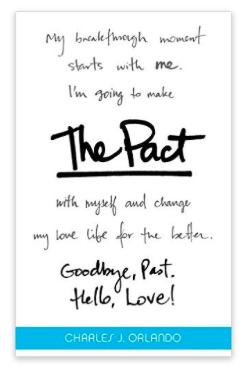 My breakthrough moment
starts with me.
I'm going to make
The Pact
with myself and change
my love life for the better.
Goodbye, Past.
Hello, Love!
CHARLES J. ORLANDO